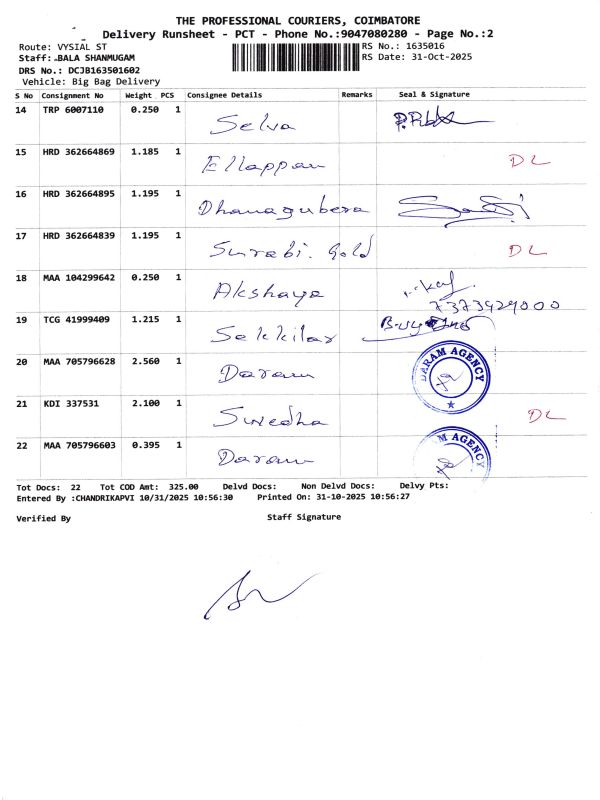 THE PROFESSIONAL COURIERS, COIMBATORE
Delivery Runsheet - PCT - Phone No.:9047080280 - Page No.:2
Route: VYSIAL ST RS No.: 1635016
Staff: BALA SHANMUGAM RS Date: 31-Oct-2025
DRS No.: DCJB163501602
Vehicle: Big Bag Delivery
S No Consignment No Weight PCS Consignee Details Remarks Seal & Signature
14 TRP 6007110 0.250 1 Selva
15 HRD 362664869 1.185 1 Ellappan DL
16 HRD 362664895 1.195 1 Dhanagubera
17 HRD 362664839 1.195 1 Surabi. Gold DL
18 MAA 104299642 0.250 1 Akshaya
7373929000
19 TCG 41999409 1.215 1 Sekkilar
20 MAA 705796628 2.560 1 Daram DARAM AGENCY
21 KDI 337531 2.100 1 Swedha DL
22 MAA 705796603 0.395 1 Daram M AGENCY
Tot Docs: 22 Tot COD Amt: 325.00 Delvd Docs: Non Delvd Docs: Delvy Pts:
Entered By :CHANDRIKAPVI 10/31/2025 10:56:30 Printed On: 31-10-2025 10:56:27
Verified By Staff Signature